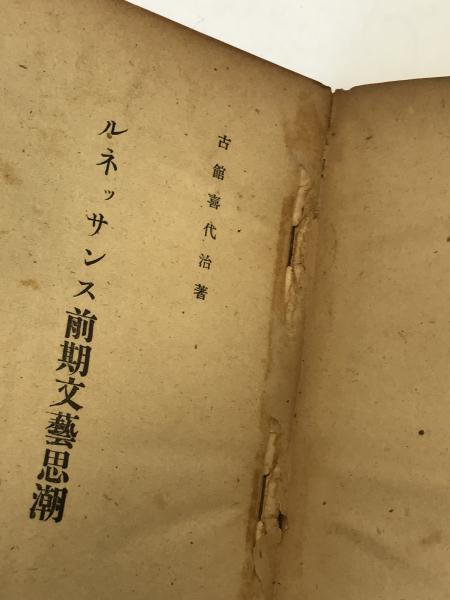 古館喜代治著
ルネッサンス前期文藝思潮